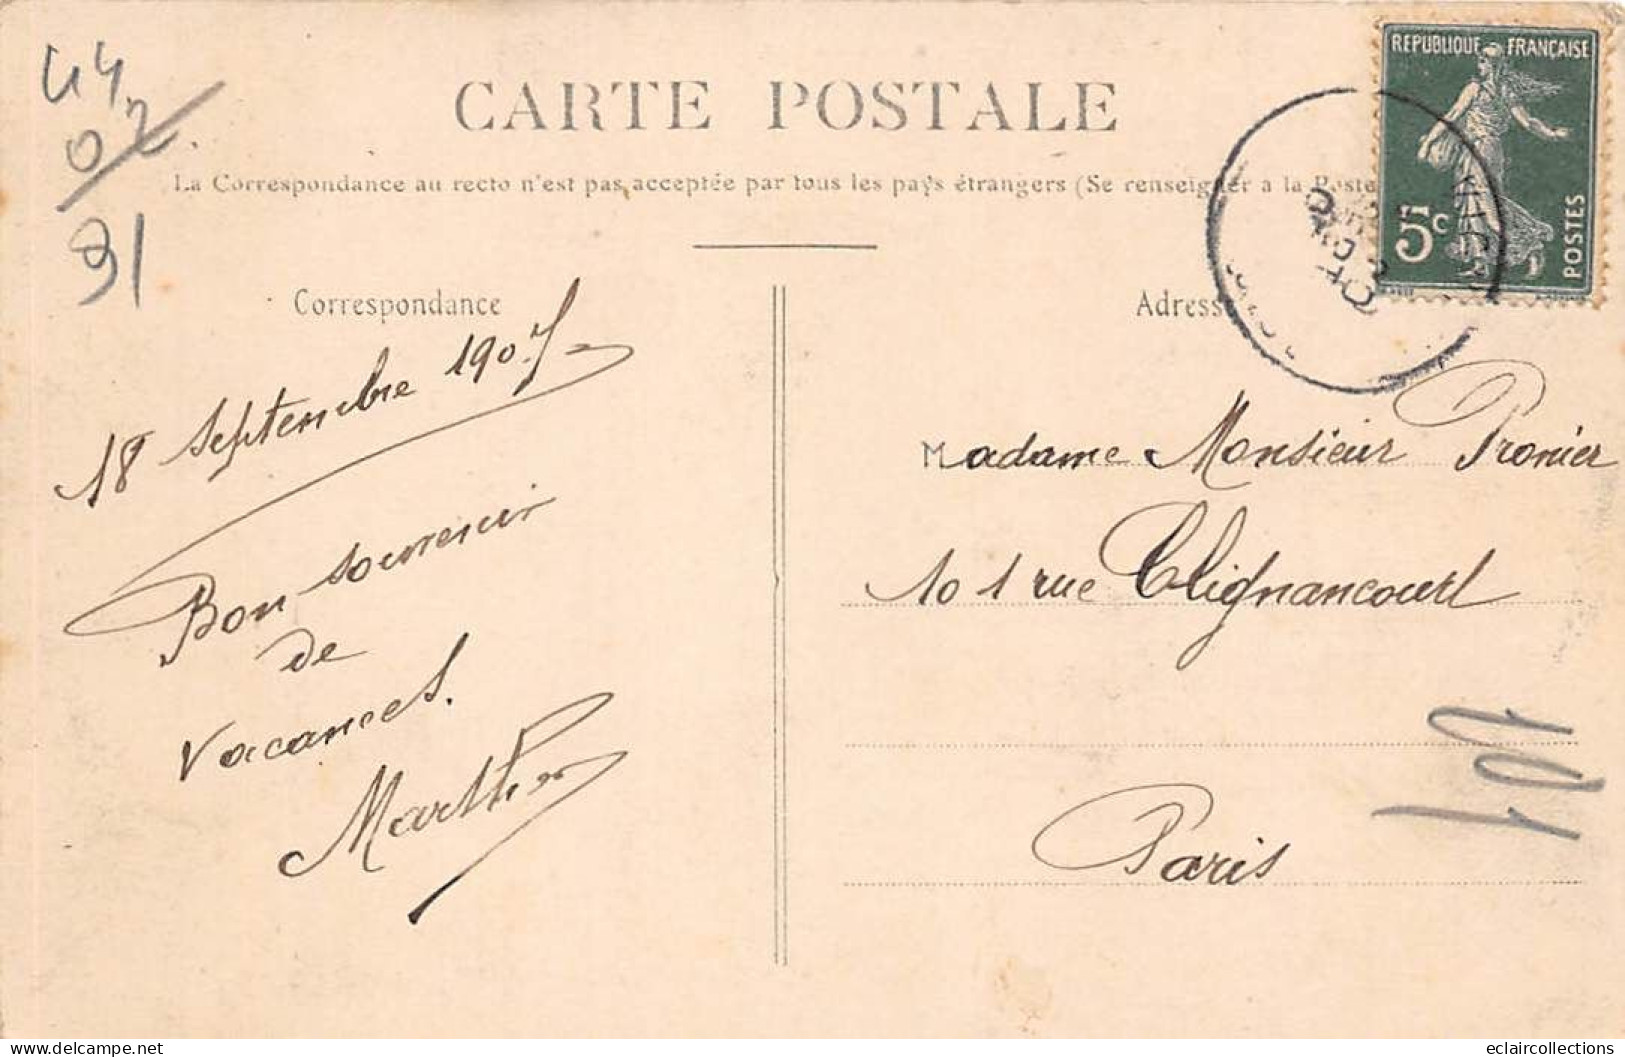 44
02
91
CARTE POSTALE
La Correspondance au recto n'est pas acceptée par tous les pays étrangers (Se renseigner a la Poste
REPUBLIQUE FRANÇAISE
5c
POSTES
Correspondance
18 septembre 1907
Bon souvenir
de
vacances.
Marthe
Adresse
Madame Monsieur Pronier
101 rue Clignancourt
Paris
101
delcampe.net
eclaircollections